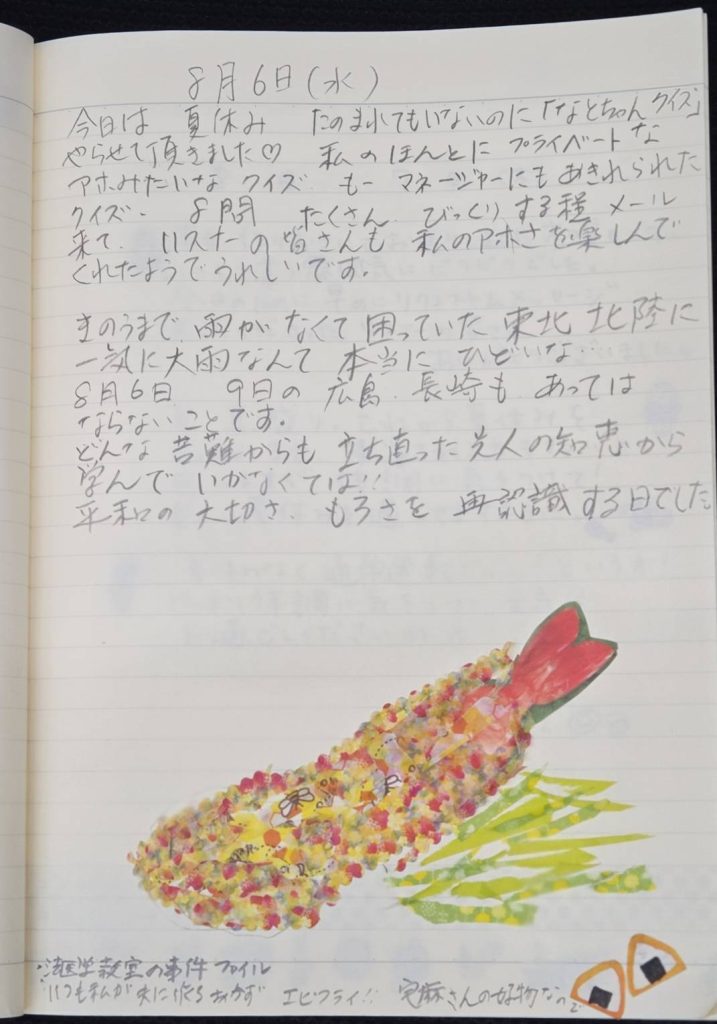 8月6日(水)
今日は 夏休み たのまれてもいないのに「なとちゃんクイズ」
やらせて頂きました♡ 私の ほんとに プライベートな
アホみたいな クイズ. もー マネージャーにも あきれられた
クイズ. 8問 たくさん びっくりする程 メール
来て. リスナーの皆さんも 私のアホさを楽しんで
くれたようで うれしいです.
きのうまで 雨が なくて 困っていた 東北 北陸に
一気に大雨なんて 本当に ひどいな…
8月6日 9日の 広島. 長崎も あっては
ならない ことです.
どんな 苦難からも 立ち直った 先人の知恵から
学んで いかなくては!!
平和の 大切さ. もろさを 再認識する日でした
法医学教室の事件ファイル
いつも私が夫に作るおかず エビフライ!! 宅麻さんの好物なので